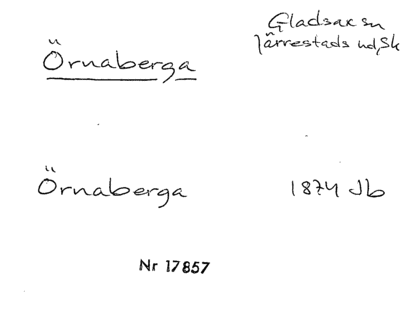 Gladsax sn
Järrestads hd, Sk
Örnaberga
Örnaberga 1874 Jb
Nr 17857